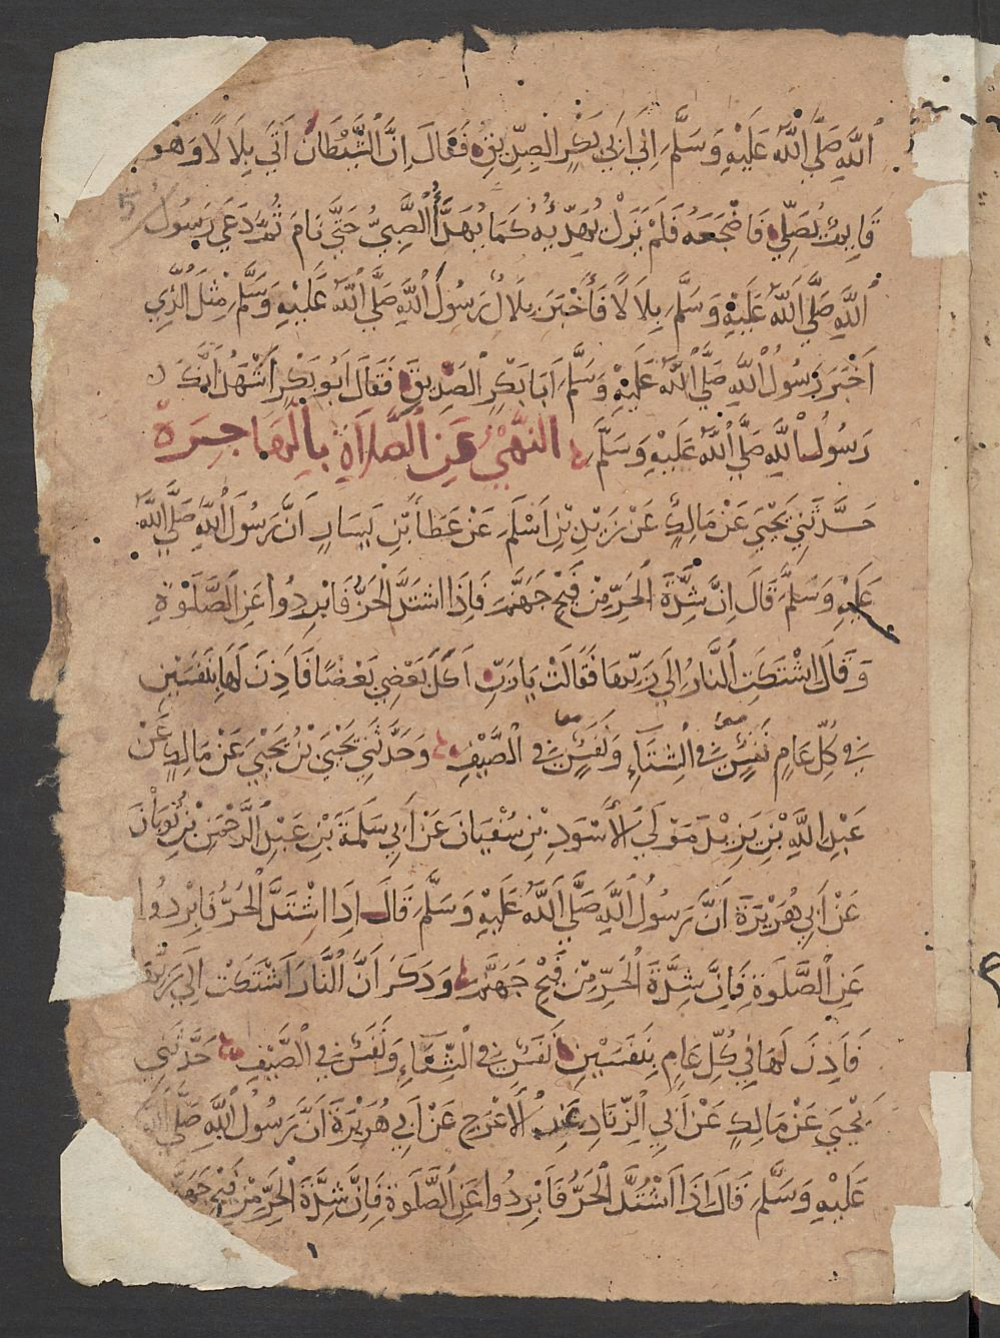 اللَّهِ صَلَّى اللَّهُ عَلَيْهِ وَسَلَّمَ إِلَى أَبِي بَكْرٍ الصِّدِّيقِ فَقَالَ إِنَّ الشَّيْطَانَ أَتَى بِلَالًا وَهُوَ
قَائِمٌ يُصَلِّي فَأَضْجَعَهُ فَلَمْ يَزَلْ يُهَدِّيهِ كَمَا يُهَدَّأُ الصَّبِيُّ حَتَّى نَامَ ثُمَّ دَعَى رَسُولُ
اللَّهِ صَلَّى اللَّهُ عَلَيْهِ وَسَلَّمَ بِلَالًا فَأَخْبَرَ بِلَالٌ رَسُولَ اللَّهِ صَلَّى اللَّهُ عَلَيْهِ وَسَلَّمَ مِثْلَ الَّذِي
أَخْبَرَ رَسُولُ اللَّهِ صَلَّى اللَّهُ عَلَيْهِ وَسَلَّمَ أَبَا بَكْرٍ الصِّدِّيقَ فَقَالَ أَبُو بَكْرٍ أَشْهَدُ أَنَّكَ
رَسُولُ اللَّهِ صَلَّى اللَّهُ عَلَيْهِ وَسَلَّمَ النَّهْيُ عَنِ الصَّلَاةِ بِالْهَاجِرَة
حَدَّثَنِي يَحْيَى عَنْ مَالِكٍ عَنْ زَيْدِ بْنِ أَسْلَمَ عَنْ عَطَاءِ بْنِ يَسَارٍ أَنَّ رَسُولَ اللَّهِ صَلَّى اللَّهُ
عَلَيْهِ وَسَلَّمَ قَالَ إِنَّ شِدَّةَ الْحَرِّ مِنْ فَيْحِ جَهَنَّمَ فَإِذَا اشْتَدَّ الْحَرُّ فَابْرِدُوا عَنِ الصَّلَوٰةِ
وَقَالَ اشْتَكَتِ النَّارُ إِلَى رَبِّهَا فَقَالَتْ يَا رَبِّ أَكَلَ بَعْضِي بَعْضًا فَأَذِنَ لَهَا بِنَفَسَيْنِ
فِي كُلِّ عَامٍ نَفَسٍ فِي الشِّتَاءِ وَنَفَسٍ فِي الصَّيْفِ وَحَدَّثَنِي يَحْيَى بْنُ يَحْيَى عَنْ مَالِكٍ عَنْ
عَبْدِ اللَّهِ بْنِ يَزِيدَ مَوْلَى الْأَسْوَدِ بْنِ سُفْيَانَ عَنْ أَبِي سَلَمَةَ بْنِ عَبْدِ الرَّحْمَنِ بْنِ ثَوْبَانَ
عَنْ أَبِي هُرَيْرَةَ أَنَّ رَسُولَ اللَّهِ صَلَّى اللَّهُ عَلَيْهِ وَسَلَّمَ قَالَ إِذَا اشْتَدَّ الْحَرُّ فَابْرِدُوا
عَنِ الصَّلَوةِ فَإِنَّ شِدَّةَ الْحَرِّ مِنْ فَيْحِ جَهَنَّمَ وَذَكَرَ أَنَّ النَّارَ اشْتَكَتْ إِلَى رَبِّهَا
فَأَذِنَ لَهَا فِي كُلِّ عَامٍ بِنَفَسَيْنِ نَفَسٍ فِي الشِّتَاءِ وَنَفَسٍ فِي الصَّيْفِ حَدَّثَنِي
يَحْيَى عَنْ مَالِكٍ عَنْ أَبِي الزِّنَادِ عَنِ الْأَعْرَجِ عَنْ أَبِي هُرَيْرَةَ أَنَّ رَسُولَ اللَّهِ صَلَّى اللَّهُ
عَلَيْهِ وَسَلَّمَ قَالَ إِذَا اشْتَدَّ الْحَرُّ فَابْرِدُوا عَنِ الصَّلَوةِ فَإِنَّ شِدَّةَ الْحَرِّ مِنْ فَيْحِ جَهَنَّمَ